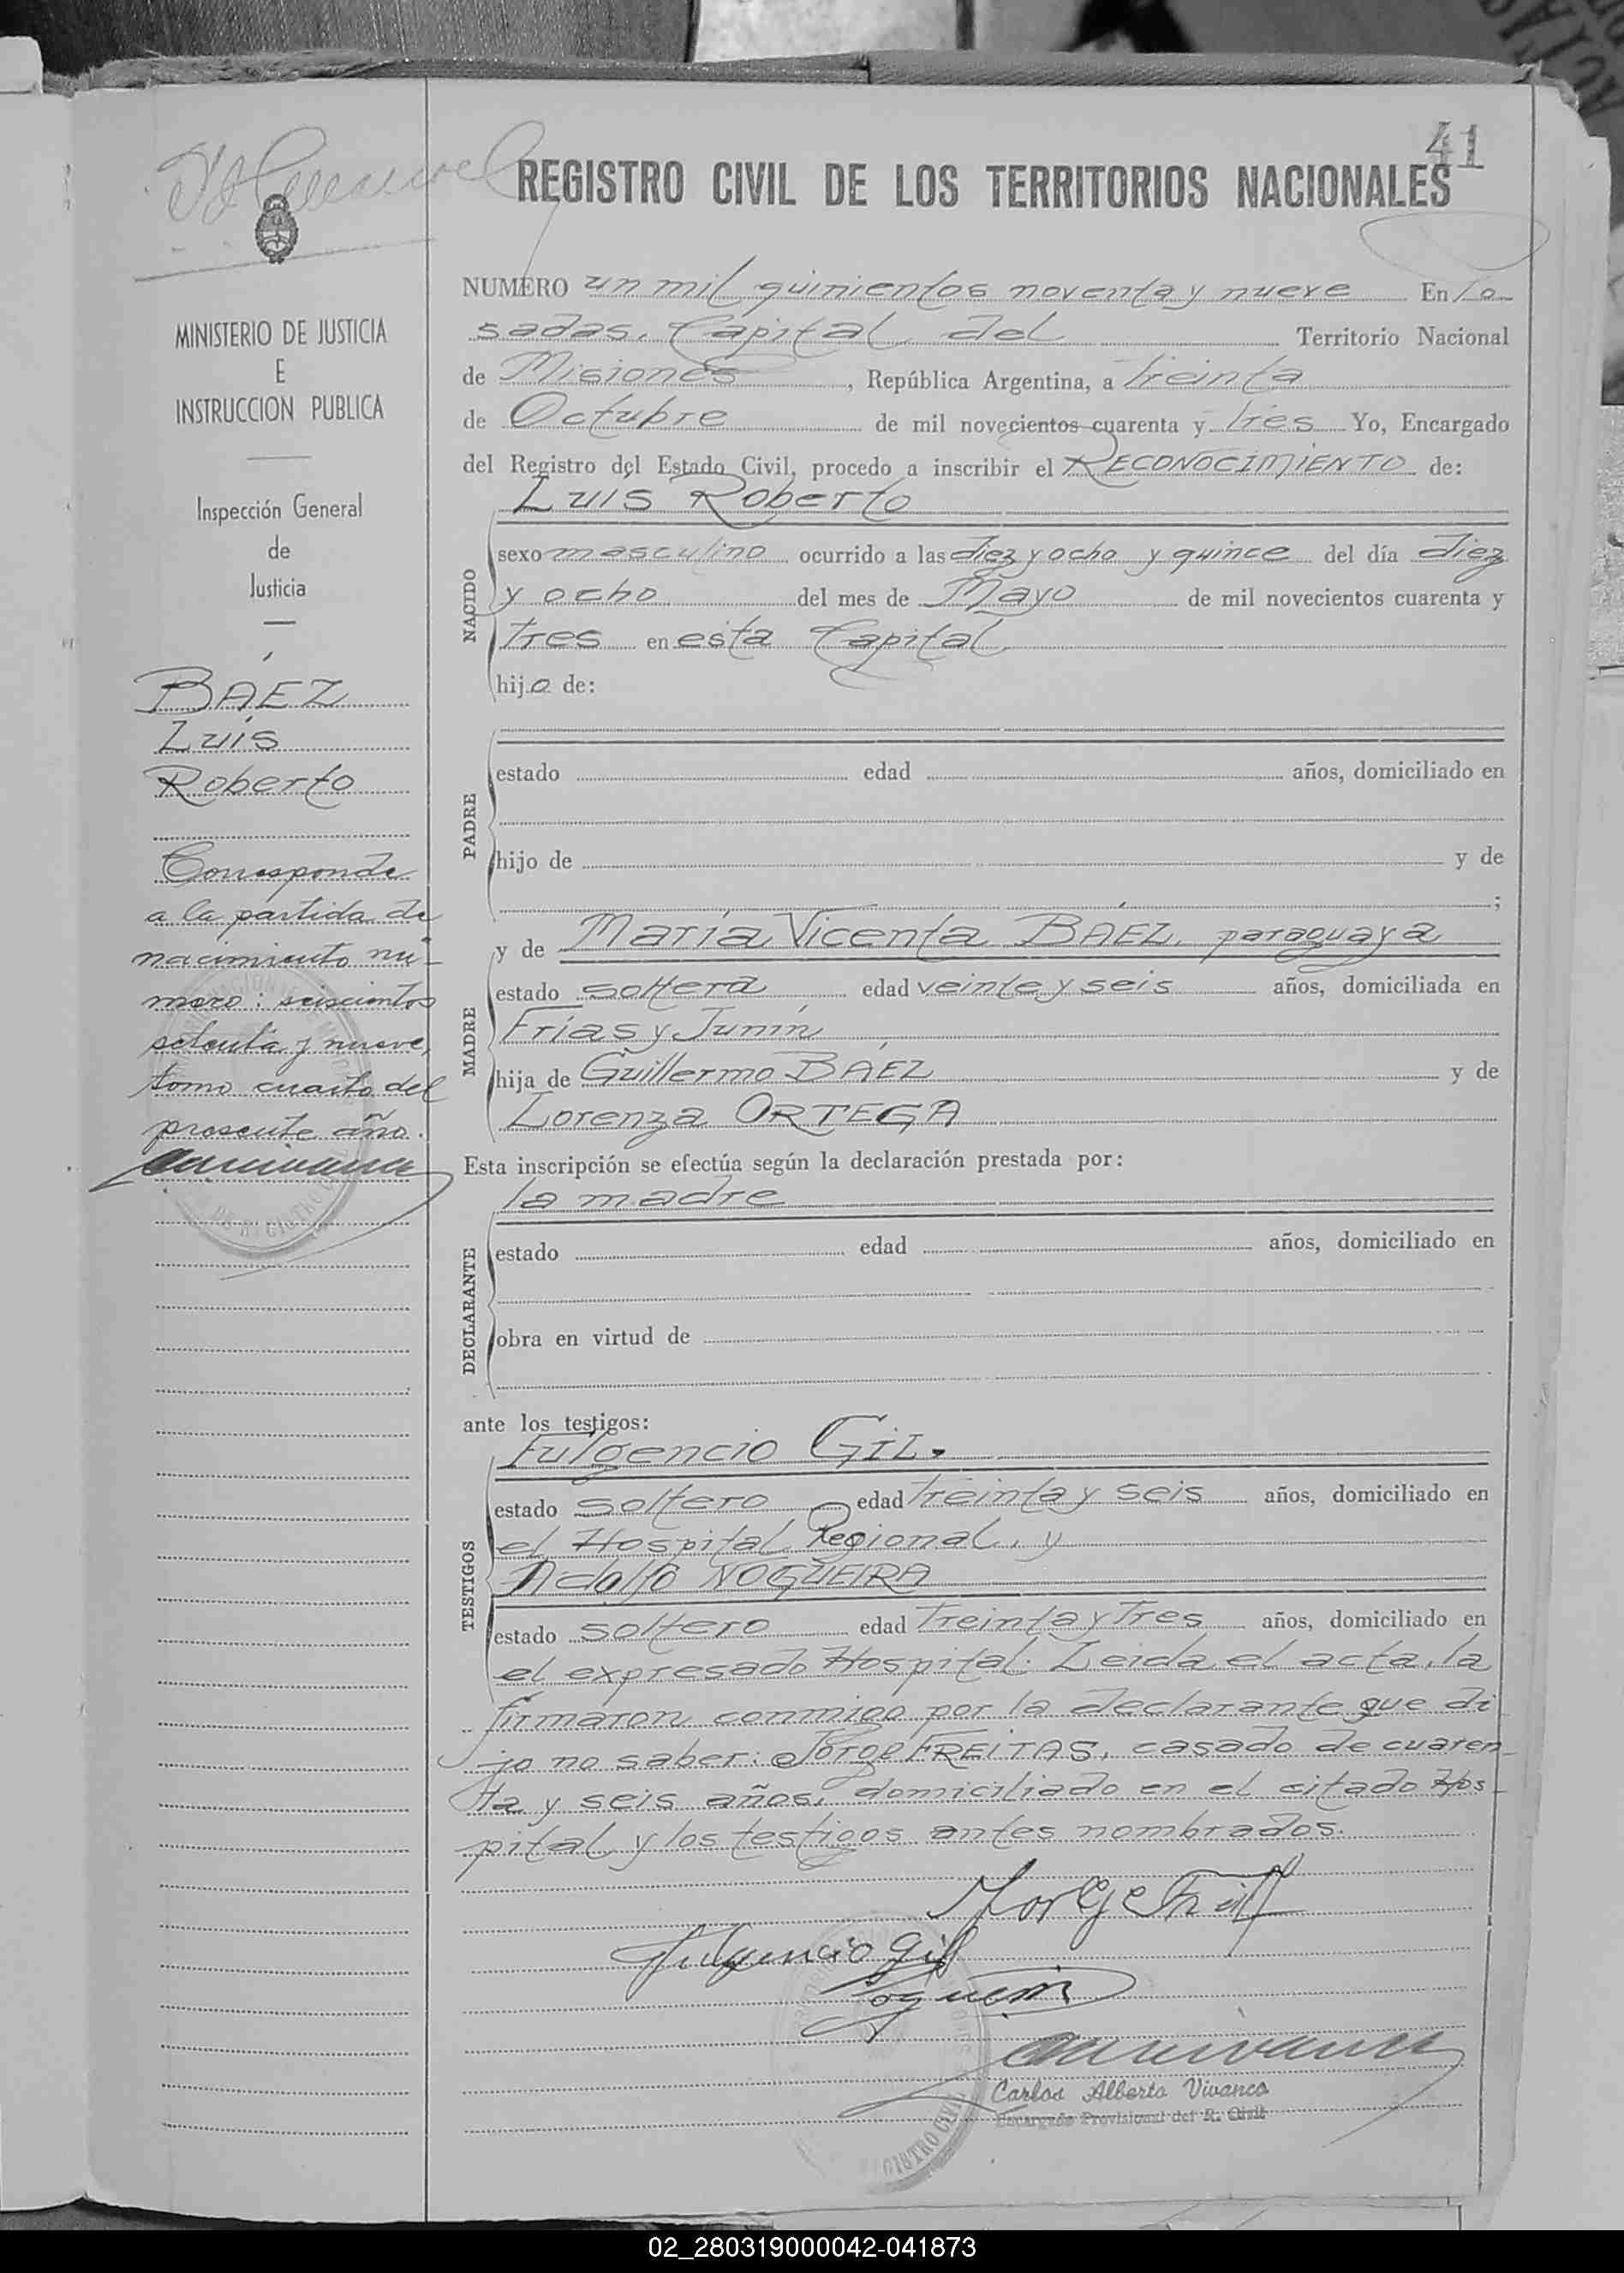 41
REGISTRO CIVIL DE LOS TERRITORIOS NACIONALES
MINISTERIO DE JUSTICIA
E
INSTRUCCION PUBLICA
Inspección General
de
Justicia
BÁEZ
Luis
Roberto
Corresponde
a la partida de
nacimiento nú-
mero: seiscientos
setenta y nueve,
tomo cuarto del
presente año.
NUMERO un mil quinientos noventa y nueve En Po
sadas, Capital del Territorio Nacional
de Misiones, República Argentina, a treinta
de Octubre de mil novecientos cuarenta y tres Yo, Encargado
del Registro del Estado Civil, procedo a inscribir el RECONOCIMIENTO de:
Luis Roberto
NACIDO
sexo masculino ocurrido a las diez y ocho y quince del día diez
y ocho del mes de Mayo de mil novecientos cuarenta y
tres en esta Capital
hijo de:
PADRE
estado edad años, domiciliado en
hijo de y de
;
y de María Vicenta BÁEZ, paraguaya
MADRE
estado soltera edad veinte y seis años, domiciliada en
Frías y Junín
hija de Guillermo BÁEZ y de
Lorenza ORTEGA
Esta inscripción se efectúa según la declaración prestada por:
la madre
DECLARANTE
estado edad años, domiciliado en
obra en virtud de
ante los testigos:
Fulgencio GIL.
TESTIGOS
estado soltero edad treinta y seis años, domiciliado en
el Hospital Regional, y
Adolfo NOGUEIRA
estado soltero edad treinta y tres años, domiciliado en
el expresado Hospital. Leida el acta, la
firmaron conmigo por la declarante que di
jo no saber: Jorge FREITAS, casado de cuaren
ta y seis años, domiciliado en el citado Hos-
pital y los testigos antes nombrados.
Fulgencio Gil
Carlos Alberto Vivanco
Encargado Provisional del R. Civil
02_280319000042-041873